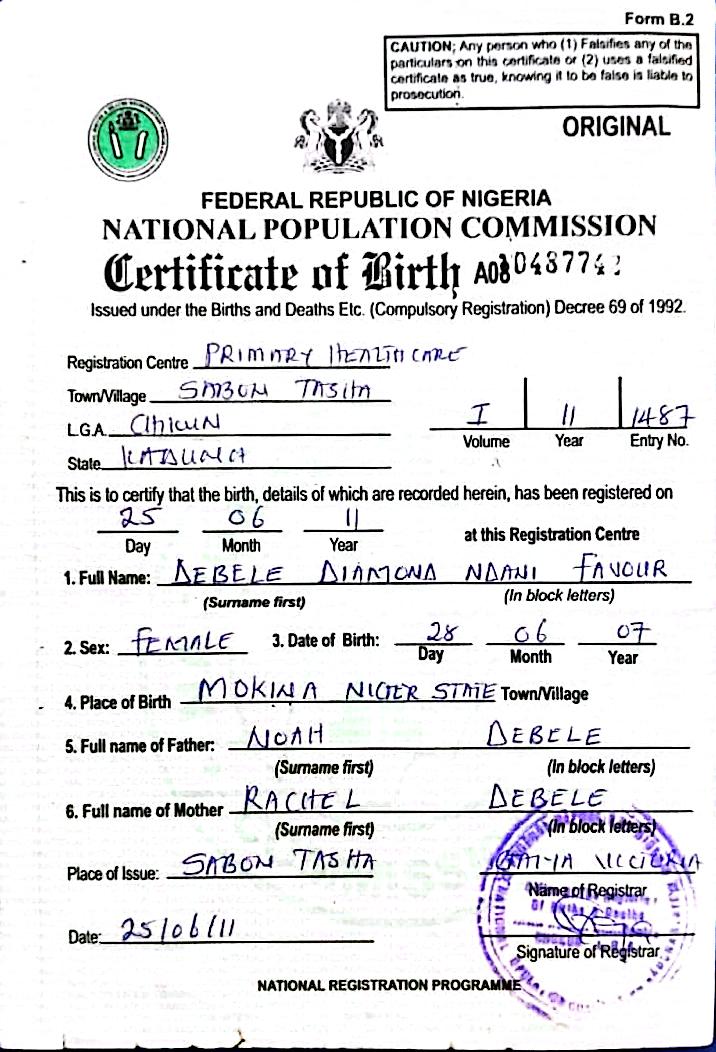 Form B.2
CAUTION; Any person who (1) Falsifies any of the
particulars on this certificate or (2) uses a falsified
certificate as true, knowing it to be false is liable to
prosecution.
ORIGINAL
FEDERAL REPUBLIC OF NIGERIA
NATIONAL POPULATION COMMISSION
Certificate of Birth
Issued under the Births and Deaths Etc. (Compulsory Registration) Decree 69 of 1992.
Registration Centre PRIMARY HEALTH CARE
Town/Village SABON TASHA
L.G.A. CHIKUN
State KADUNA
I 11 1487
Volume Year Entry No.
This is to certify that the birth, details of which are recorded herein, has been registered on
25 06 11 at this Registration Centre
Day Month Year
1. Full Name: DEBELE DIAMOND NDANI FAVOUR
(Surname first) (In block letters)
2. Sex: FEMALE 3. Date of Birth: 28 06 07
Day Month Year
4. Place of Birth MOKINA NIGER STATE Town/Village
5. Full name of Father: NOAH DEBELE
(Surname first) (In block letters)
6. Full name of Mother RACHEL DEBELE
(Surname first) (In block letters)
Place of Issue: SABON TASHA VICTORIA
Name of Registrar
Date: 25/06/11
Signature of Registrar
NATIONAL REGISTRATION PROGRAMME